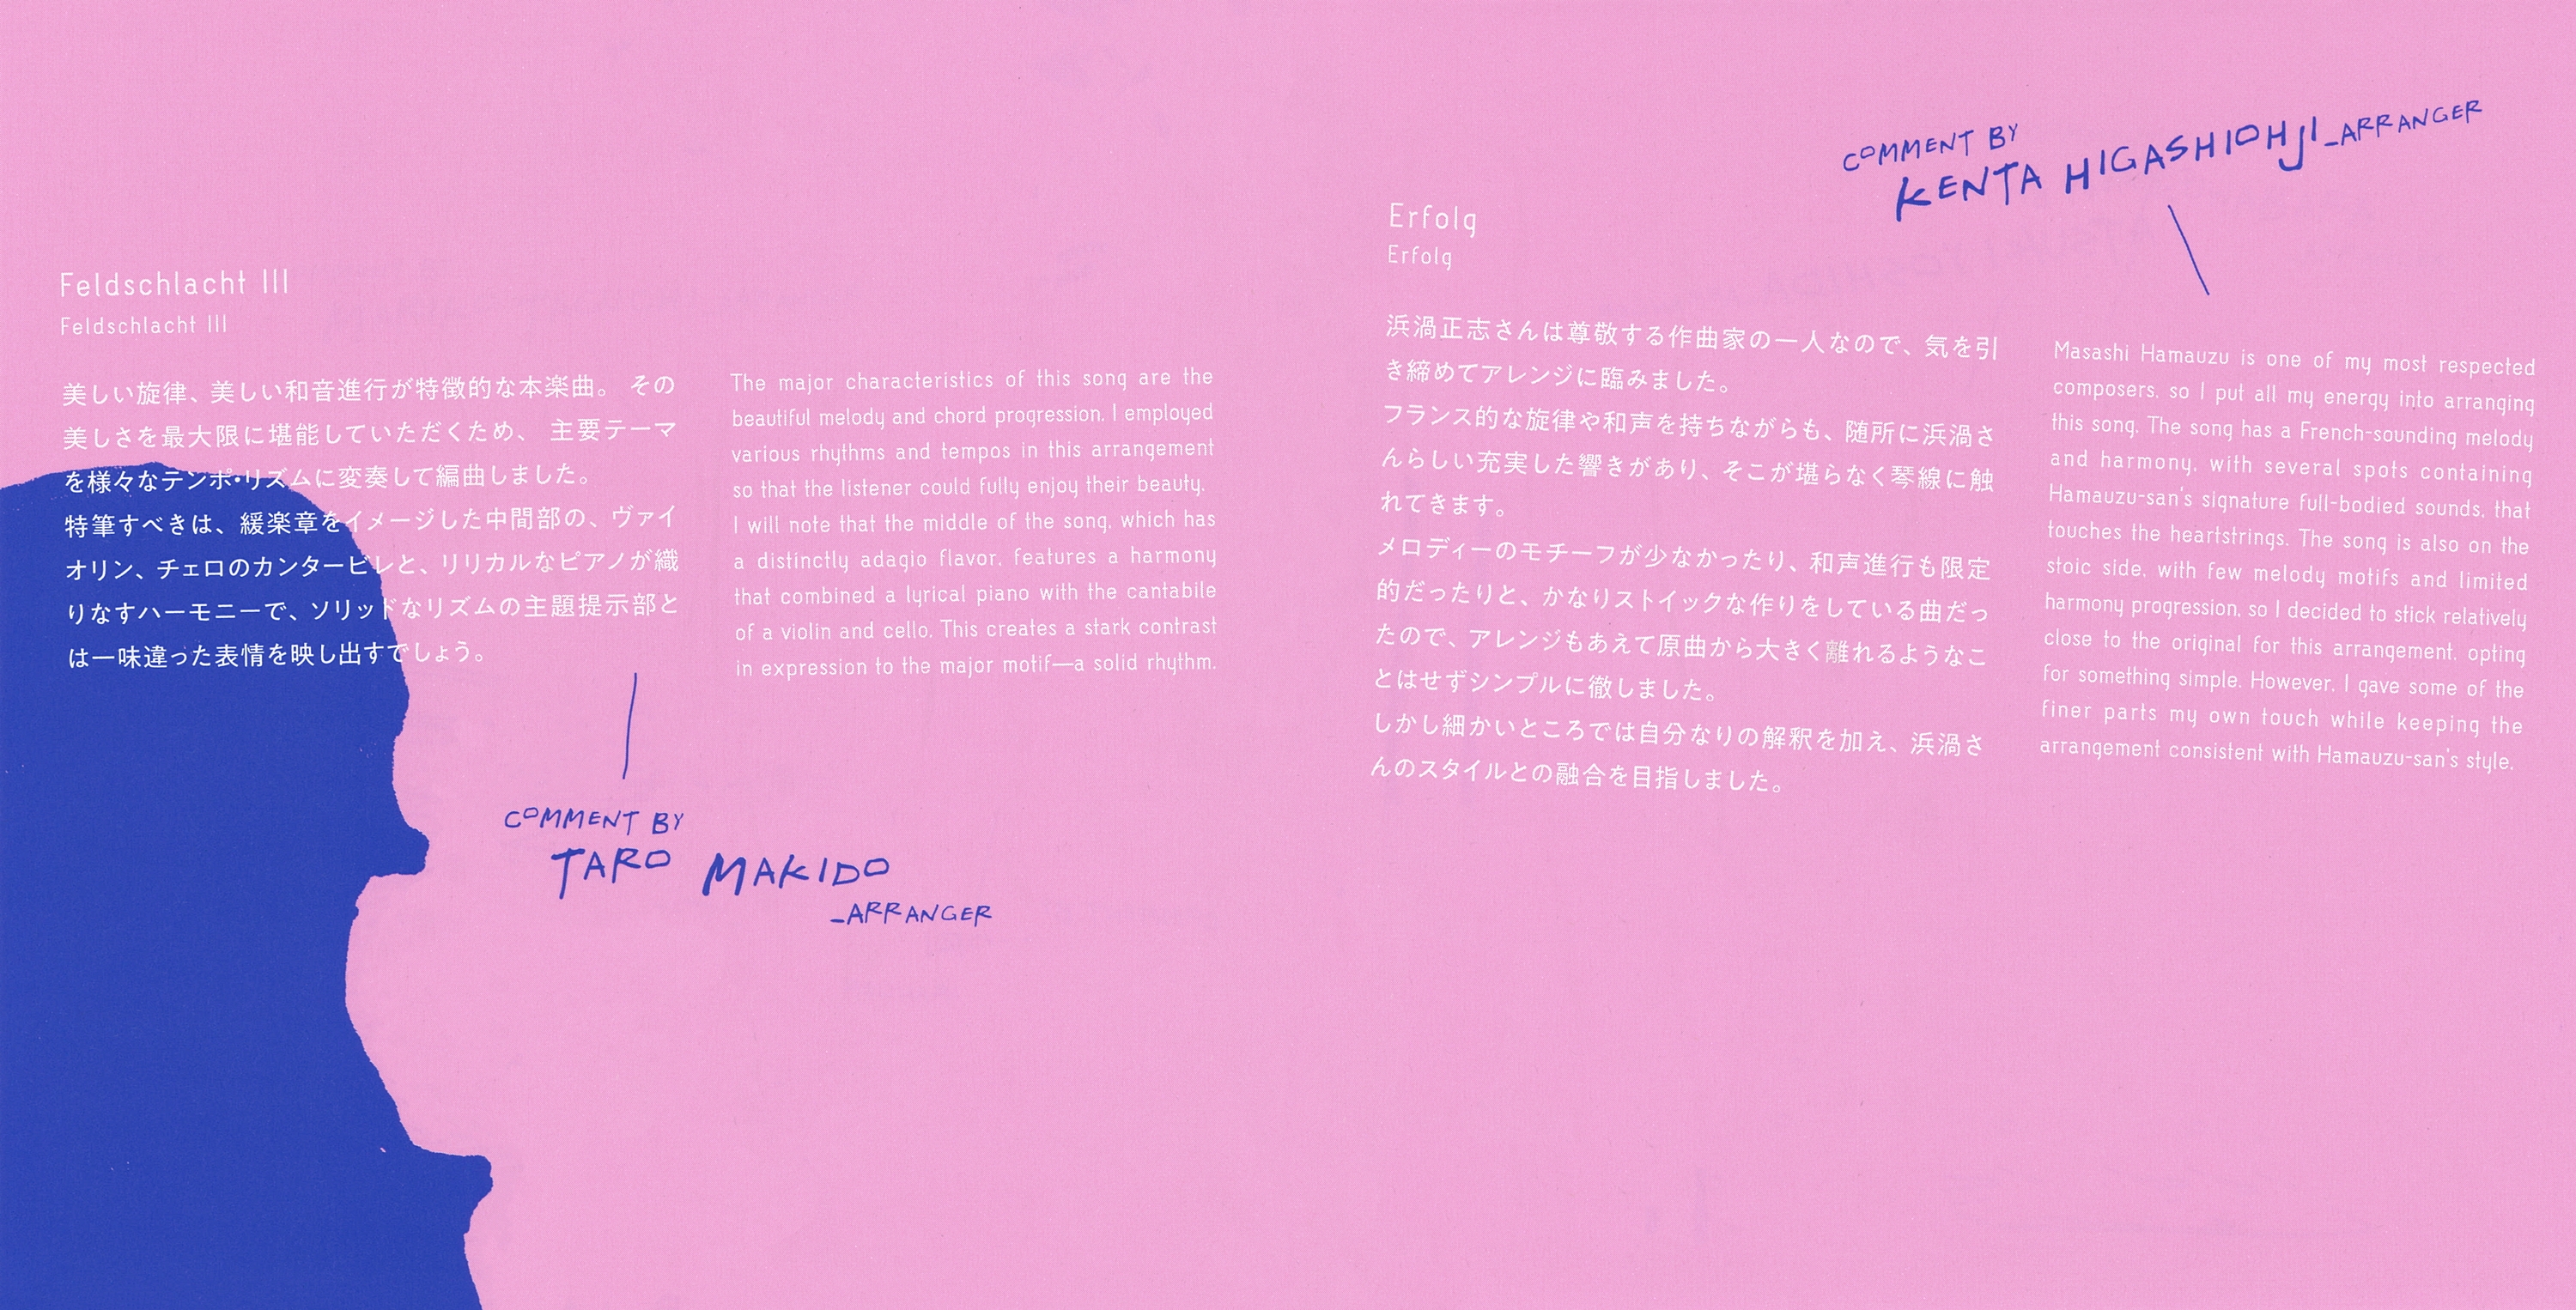 Feldschlacht III
Feldschlacht III
美しい旋律、美しい和音進行が特徴的な本楽曲。 その
美しさを最大限に堪能していただくため、 主要テーマ
を様々なテンポ・リズムに変奏して編曲しました。
特筆すべきは、緩楽章をイメージした中間部の、ヴァイ
オリン、チェロのカンタービレと、リリカルなピアノが織
りなすハーモニーで、ソリッドなリズムの主題提示部と
は一味違った表情を映し出すでしょう。
The major characteristics of this song are the
beautiful melody and chord progression. I employed
various rhythms and tempos in this arrangement
so that the listener could fully enjoy their beauty.
I will note that the middle of the song, which has
a distinctly adagio flavor, features a harmony
that combined a lyrical piano with the cantabile
of a violin and cello. This creates a stark contrast
in expression to the major motif—a solid rhythm.
COMMENT BY
TARO MAKIDO
_ARRANGER
COMMENT BY
KENTA HIGASHIOHJI_ARRANGER
Erfolg
Erfolg
浜渦正志さんは尊敬する作曲家の一人なので、気を引
き締めてアレンジに臨みました。
フランス的な旋律や和声を持ちながらも、随所に浜渦さ
んらしい充実した響きがあり、そこが堪らなく琴線に触
れてきます。
メロディーのモチーフが少なかったり、和声進行も限定
的だったりと、かなりストイックな作りをしている曲だっ
たので、アレンジもあえて原曲から大きく離れるようなこ
とはせずシンプルに徹しました。
しかし細かいところでは自分なりの解釈を加え、浜渦さ
んのスタイルとの融合を目指しました。
Masashi Hamauzu is one of my most respected
composers, so I put all my energy into arranging
this song. The song has a French-sounding melody
and harmony, with several spots containing
Hamauzu-san's signature full-bodied sounds, that
touches the heartstrings. The song is also on the
stoic side, with few melody motifs and limited
harmony progression, so I decided to stick relatively
close to the original for this arrangement, opting
for something simple. However, I gave some of the
finer parts my own touch while keeping the
arrangement consistent with Hamauzu-san's style.